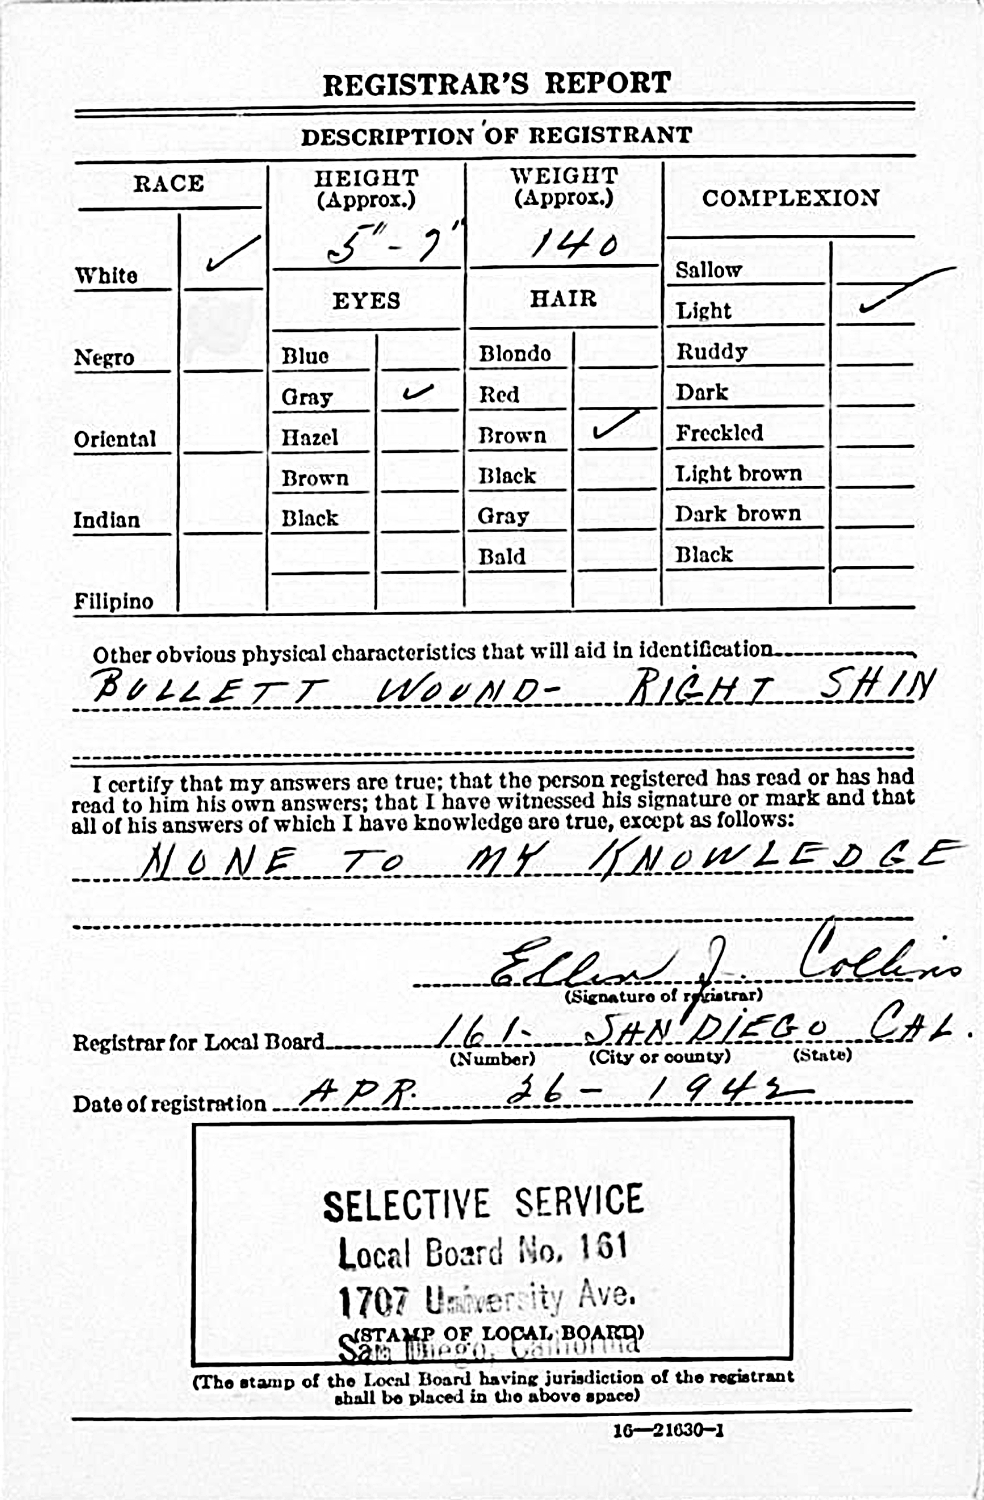 REGISTRAR'S REPORT
DESCRIPTION OF REGISTRANT
RACE
HEIGHT
(Approx.)
5" - 7"
WEIGHT
(Approx.)
140
COMPLEXION
White ✓
Negro
Oriental
Indian
Filipino
EYES
Blue
Gray ✓
Hazel
Brown
Black
HAIR
Blonde
Red
Brown ✓
Black
Gray
Bald
Sallow
Light ✓
Ruddy
Dark
Freckled
Light brown
Dark brown
Black
Other obvious physical characteristics that will aid in identification
BULLETT WOUND- RIGHT SHIN
I certify that my answers are true; that the person registered has read or has had
read to him his own answers; that I have witnessed his signature or mark and that
all of his answers of which I have knowledge are true, except as follows:
NONE TO MY KNOWLEDGE
Ellen J. Collins
(Signature of registrar)
Registrar for Local Board 161- SAN DIEGO CAL.
(Number) (City or county) (State)
Date of registration APR. 26 - 1942
SELECTIVE SERVICE
Local Board No. 161
1707 University Ave.
(STAMP OF LOCAL BOARD)
San Diego, California
(The stamp of the Local Board having jurisdiction of the registrant
shall be placed in the above space)
16—21630-1